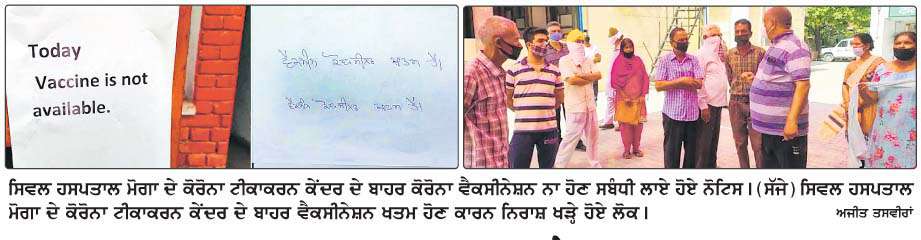 Today
Vaccine is not
available.
ਵੈਕਸੀਨ ਕੋਵਸੀਲਡ ਖਤਮ ਹੈ।
ਖਤਮ ਹੈ।
ਸਿਵਲ ਹਸਪਤਾਲ ਮੋਗਾ ਦੇ ਕੋਰੋਨਾ ਟੀਕਾਕਰਨ ਕੇਂਦਰ ਦੇ ਬਾਹਰ ਕੋਰੋਨਾ ਵੈਕਸੀਨੇਸ਼ਨ ਨਾ ਹੋਣ ਸਬੰਧੀ ਲਾਏ ਹੋਏ ਨੋਟਿਸ। (ਸੱਜੇ) ਸਿਵਲ ਹਸਪਤਾਲ
ਮੋਗਾ ਦੇ ਕੋਰੋਨਾ ਟੀਕਾਕਰਨ ਕੇਂਦਰ ਦੇ ਬਾਹਰ ਵੈਕਸੀਨੇਸ਼ਨ ਖਤਮ ਹੋਣ ਕਾਰਨ ਨਿਰਾਸ਼ ਖੜ੍ਹੇ ਹੋਏ ਲੋਕ।
ਅਜੀਤ ਤਸਵੀਰਾਂ